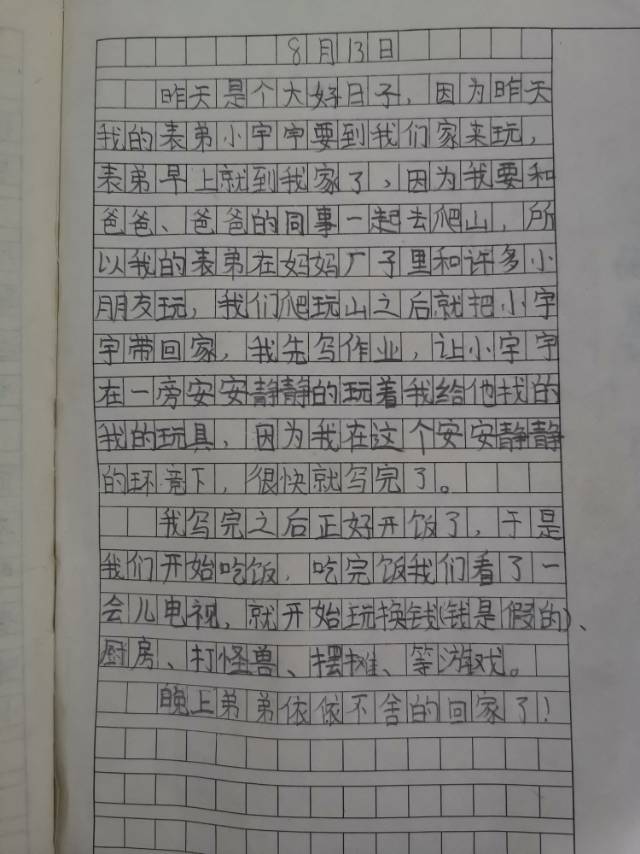 8月13日
昨天是个大好日子，因为昨天
我的表弟小宇宇要到我们家来玩，
表弟早上就到我家了，因为我要和
爸爸、爸爸的同事一起去爬山，所
以我的表弟在妈妈厂子里和许多小
朋友玩，我们爬玩山之后就把小宇
宇带回家，我先写作业，让小宇宇
在一旁安安静静的玩着我给他找的
我的玩具，因为我在这个安安静静
的环竟下，很快就写完了。
我写完之后正好开饭了，于是
我们开始吃饭，吃完饭我们看了一
会儿电视，就开始玩换钱(钱是假的)、
厨房、打怪兽、摆摊、等游戏。
晚上弟弟依依不舍的回家了！